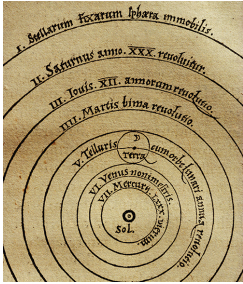 I. Stellarum Fixarum Sphæra immobilis.
II. Saturnus anno. XXX. revoluitur.
III. Iovis. XII. annorum revolutio.
IIII. Martis bima revolutio.
V. Telluris cum orbe lunari annua revolutio.
Terra
VI. Venus nonimestris.
VII. Mercurij. LXXX. dierum.
Sol.